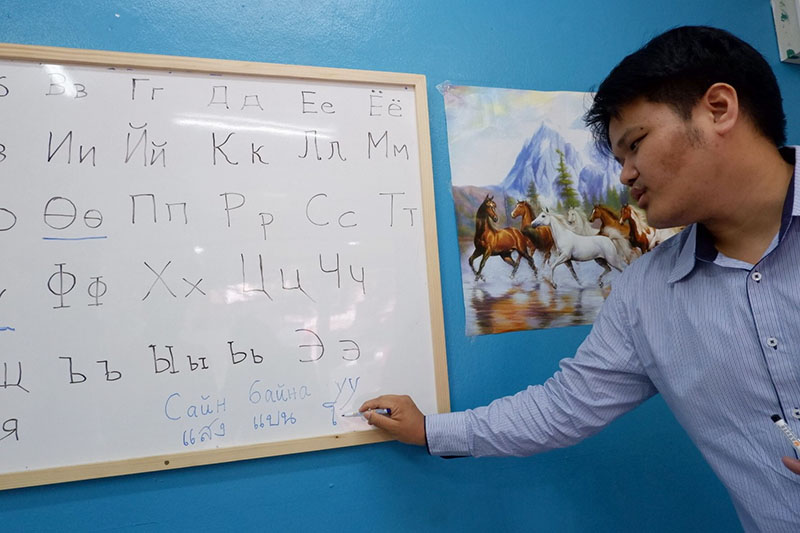 б Вв Гг Дд Ее Ёё
з Ии Йй Кк Лл Мм
о Өө Пп Рр Сс Тт
Фф Хх Цц Чч
щ Ъъ Ыы Ьь Ээ
Сайн байна уу
แสง แบน
я